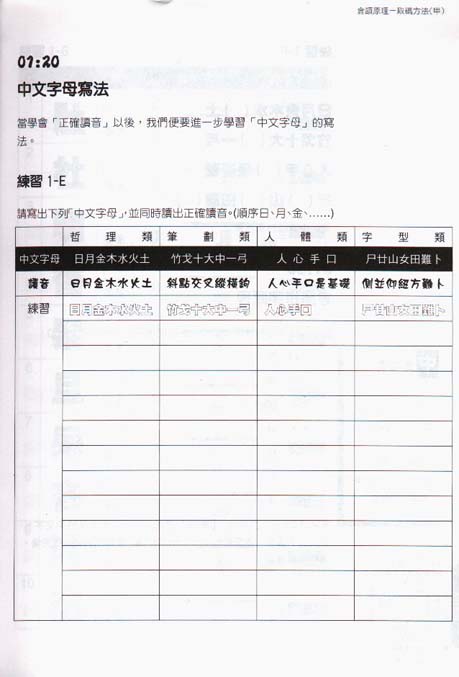 倉頡原理－取碼方法(甲)
01:20
中文字母寫法
當學會「正確讀音」以後，我們便要進一步學習「中文字母」的寫
法。
練習 1-E
請寫出下列「中文字母」，並同時讀出正確讀音。(順序日、月、金、……)
哲理類 筆劃類 人體類 字型類
中文字母 日月金木水火土 竹戈十大中一弓 人心手口 尸廿山女田難卜
讀音 日月金木水火土 斜點交叉縱橫鉤 人心手口是基礎 側並仰紐方難卜
練習 日月金木水火土 竹戈十大中一弓 人心手口 尸廿山女田難卜